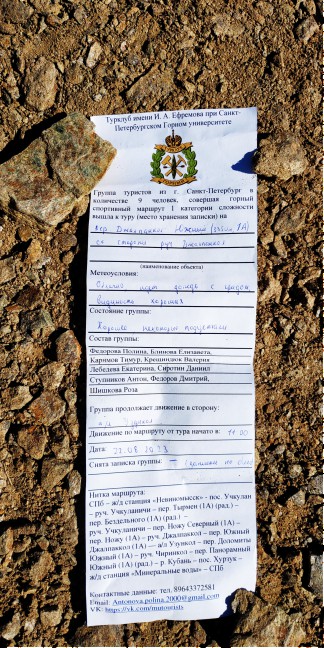 Турклуб имени И. А. Ефремова при Санкт-
Петербургском Горном университете
Группа туристов из г. Санкт-Петербург в
количестве 9 человек, совершая горный
спортивный маршрут 1 категории сложности
вышла к туру (место хранения записки) на
пер. Джалпаккол Южный (1А)
со стороны руч. Джалпаккол
(наименование объекта)
Метеоусловия:
Облачно, идёт дождь с градом,
видимость хорошая
Состояние группы:
Хорошее, некоторые подустали
Состав группы:
Федорова Полина, Блинова Елизавета,
Каримов Тимур, Крещишюк Валерия
Лебедева Екатерина, Сиротин Даниил
Ступников Антон, Федоров Дмитрий,
Шишкова Роза
Группа продолжает движение в сторону:
а/л Узункол
Движение по маршруту от тура начато в: 11:00
Дата:
Снята записка группы:
Нитка маршрута:
СПб – ж/д станция «Невинномысск» - пос. Учкулан
– руч. Учкуланичи – пер. Тырмен (1А) (рад.) –
пер. Бездельного (1А) (рад.) –
руч. Учкуланичи – пер. Ножу Северный (1А) –
пер. Ножу (1А) – руч. Джалпаккол – пер. Южный
Джалпаккол (1А) — а/л Узункол – пер. Доломиты
Южный (1А) – руч. Чиринкол – пер. Панорамный
Южный (1А) (рад.) – р. Кубань – пос. Хурзук –
ж/д станция «Минеральные воды» – СПб
Контактные данные: тел. 89643372581
Email: Antonova.polina.2000@gmail.com
VK: https://vk.com/mntourists